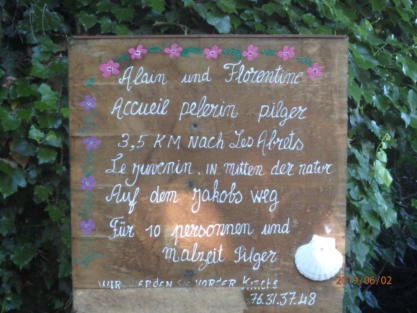 Alain und Florentine
Accueil pelerin pilger
3,5 KM Nach Les Abrets
Le juvenin. in mitten der natur
Auf dem Jakobs weg
Für 10 personnen und
malzeit Pilger
wir erden sie vor der Kirche
76.31.37.48
2013/06/02